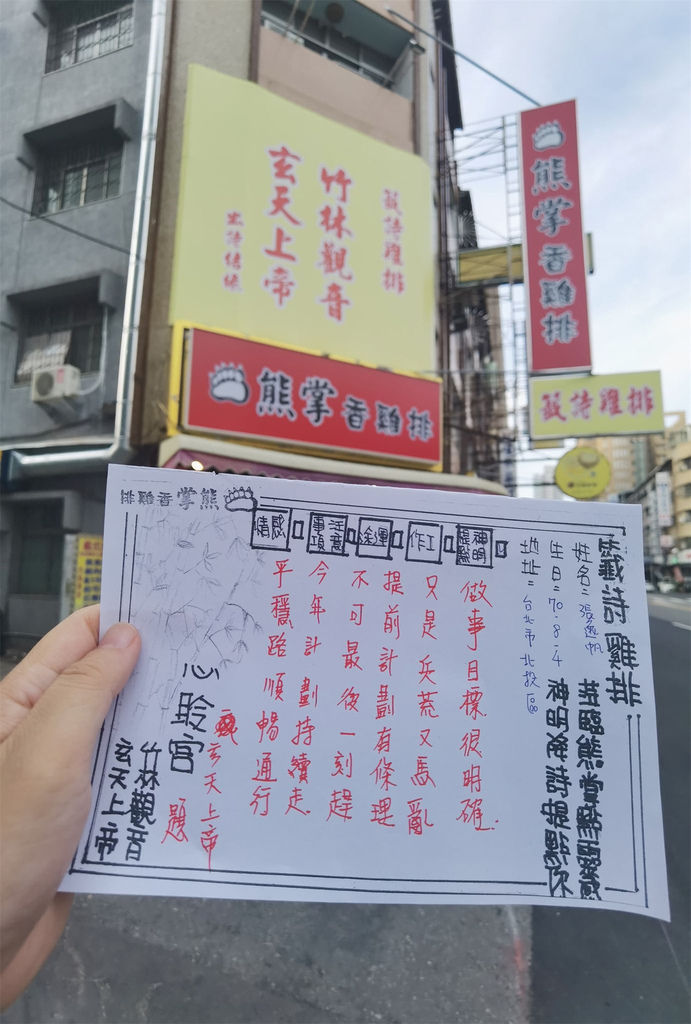 籤詩雞排
竹林觀音
玄天上帝
熊掌香雞排
熊掌香雞排
籤詩雞排
熊掌香雞排
籤詩雞排
蒞臨熊掌點靈感
神明降詩提點你
姓名=張逸帆
生日=70.8.4
地址=台北市北投區
神明提點
工作
運途
注意事項
感情
做事目標很明確
只是兵荒又馬亂
提前計劃有條理
不可最後一刻趕
今年計劃持續走
平穩踏順暢通行
玄天上帝
題
心聆宮
竹林觀音
玄天上帝